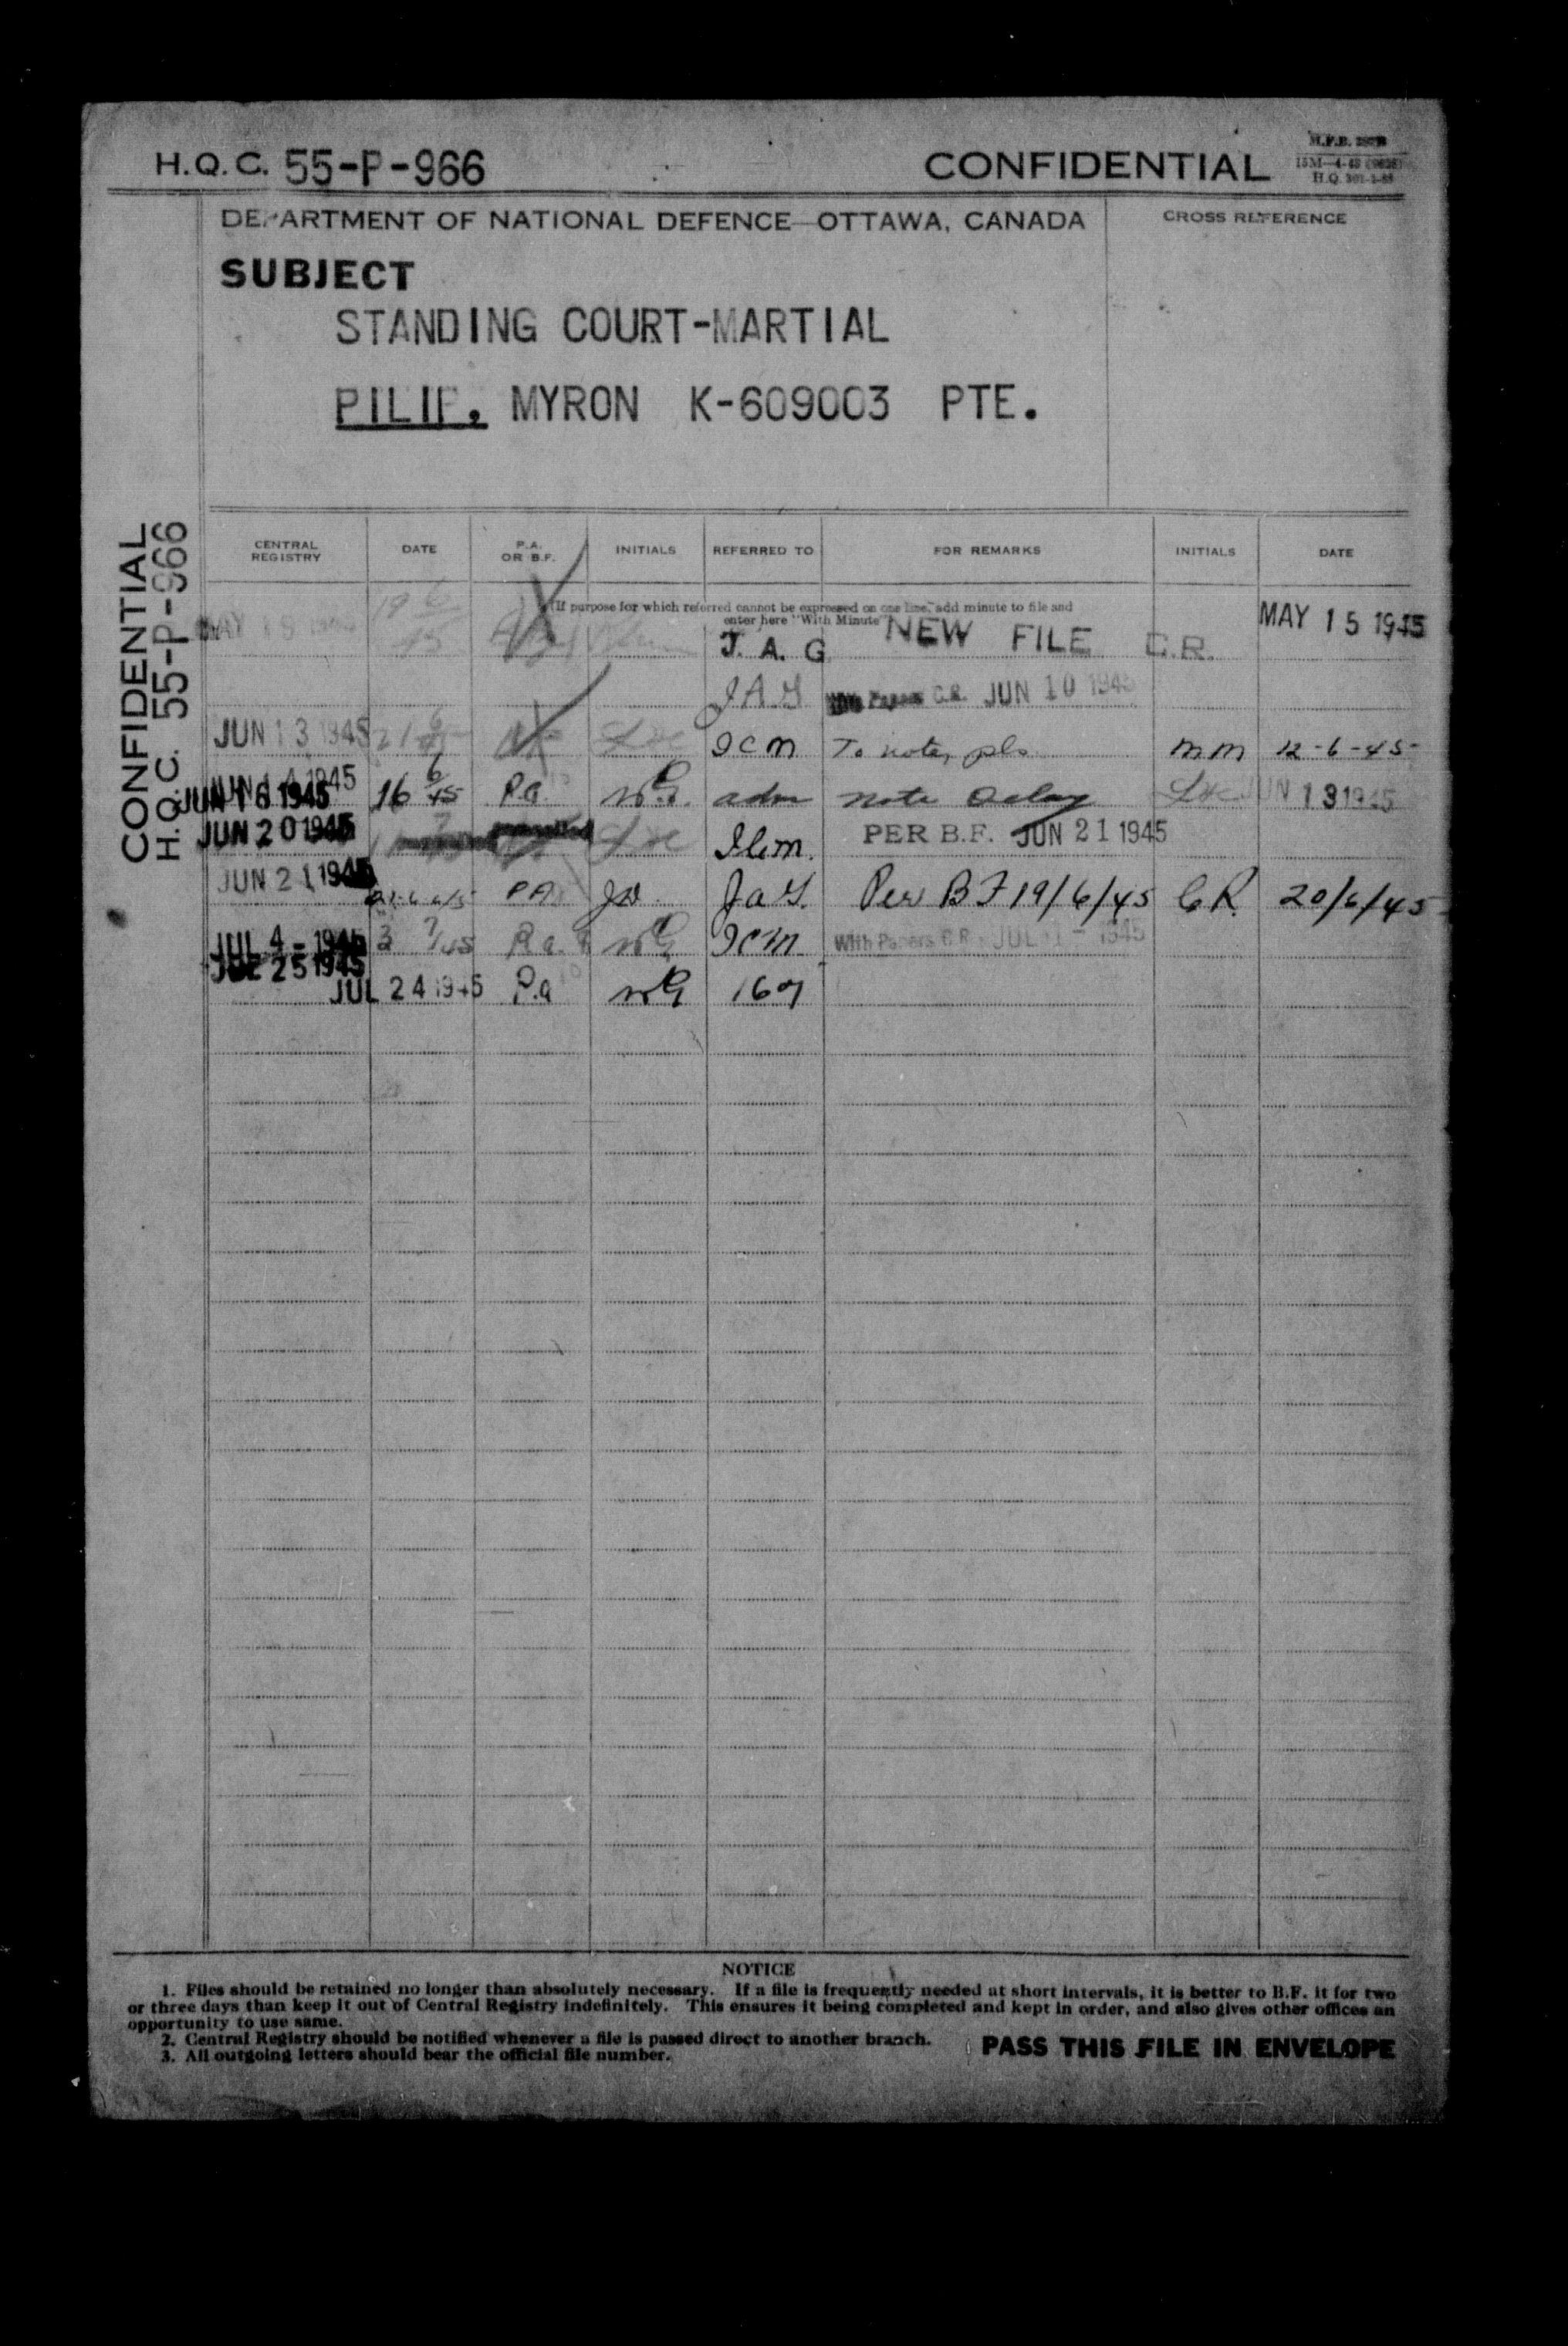 H.Q.C. 55-P-966 CONFIDENTIAL
DEPARTMENT OF NATIONAL DEFENCE—OTTAWA, CANADA
CROSS REFERENCE
SUBJECT
STANDING COURT-MARTIAL
PILIP, MYRON K-609003 PTE.
CONFIDENTIAL
H.Q.C. 55-P-966
CENTRAL REGISTRY DATE P.A. OR B.F. INITIALS REFERRED TO FOR REMARKS INITIALS DATE
(If purpose for which referred cannot be expressed on one line, add minute to file and
enter here "With Minute"
19 6/45 J. A. G NEW FILE C.R. MAY 15 1945
JAG C.R. JUN 10 1945
JUN 13 1945 JCM To note, pls MM 12-6-45
JUN 14 1945
JUN 16 1945 16 6/45 P.a. adm note delay JUN 13 1945
JUN 20 1945 PER B.F. JUN 21 1945
JUN 21 1945 21-6-45 PA JaG. Per BF 19/6/45 CR. 20/6/45
JUL 4 - 1945 3 7/45 P.a. JCM With Papers C.R. JUL - 1945
JUL 25 1945
JUL 24 1945 P.a 167
NOTICE
1. Files should be retained no longer than absolutely necessary. If a file is frequently needed at short intervals, it is better to B.F. it for two
or three days than keep it out of Central Registry indefinitely. This ensures it being completed and kept in order, and also gives other offices an
opportunity to use same.
2. Central Registry should be notified whenever a file is passed direct to another branch.
3. All outgoing letters should bear the official file number.
PASS THIS FILE IN ENVELOPE